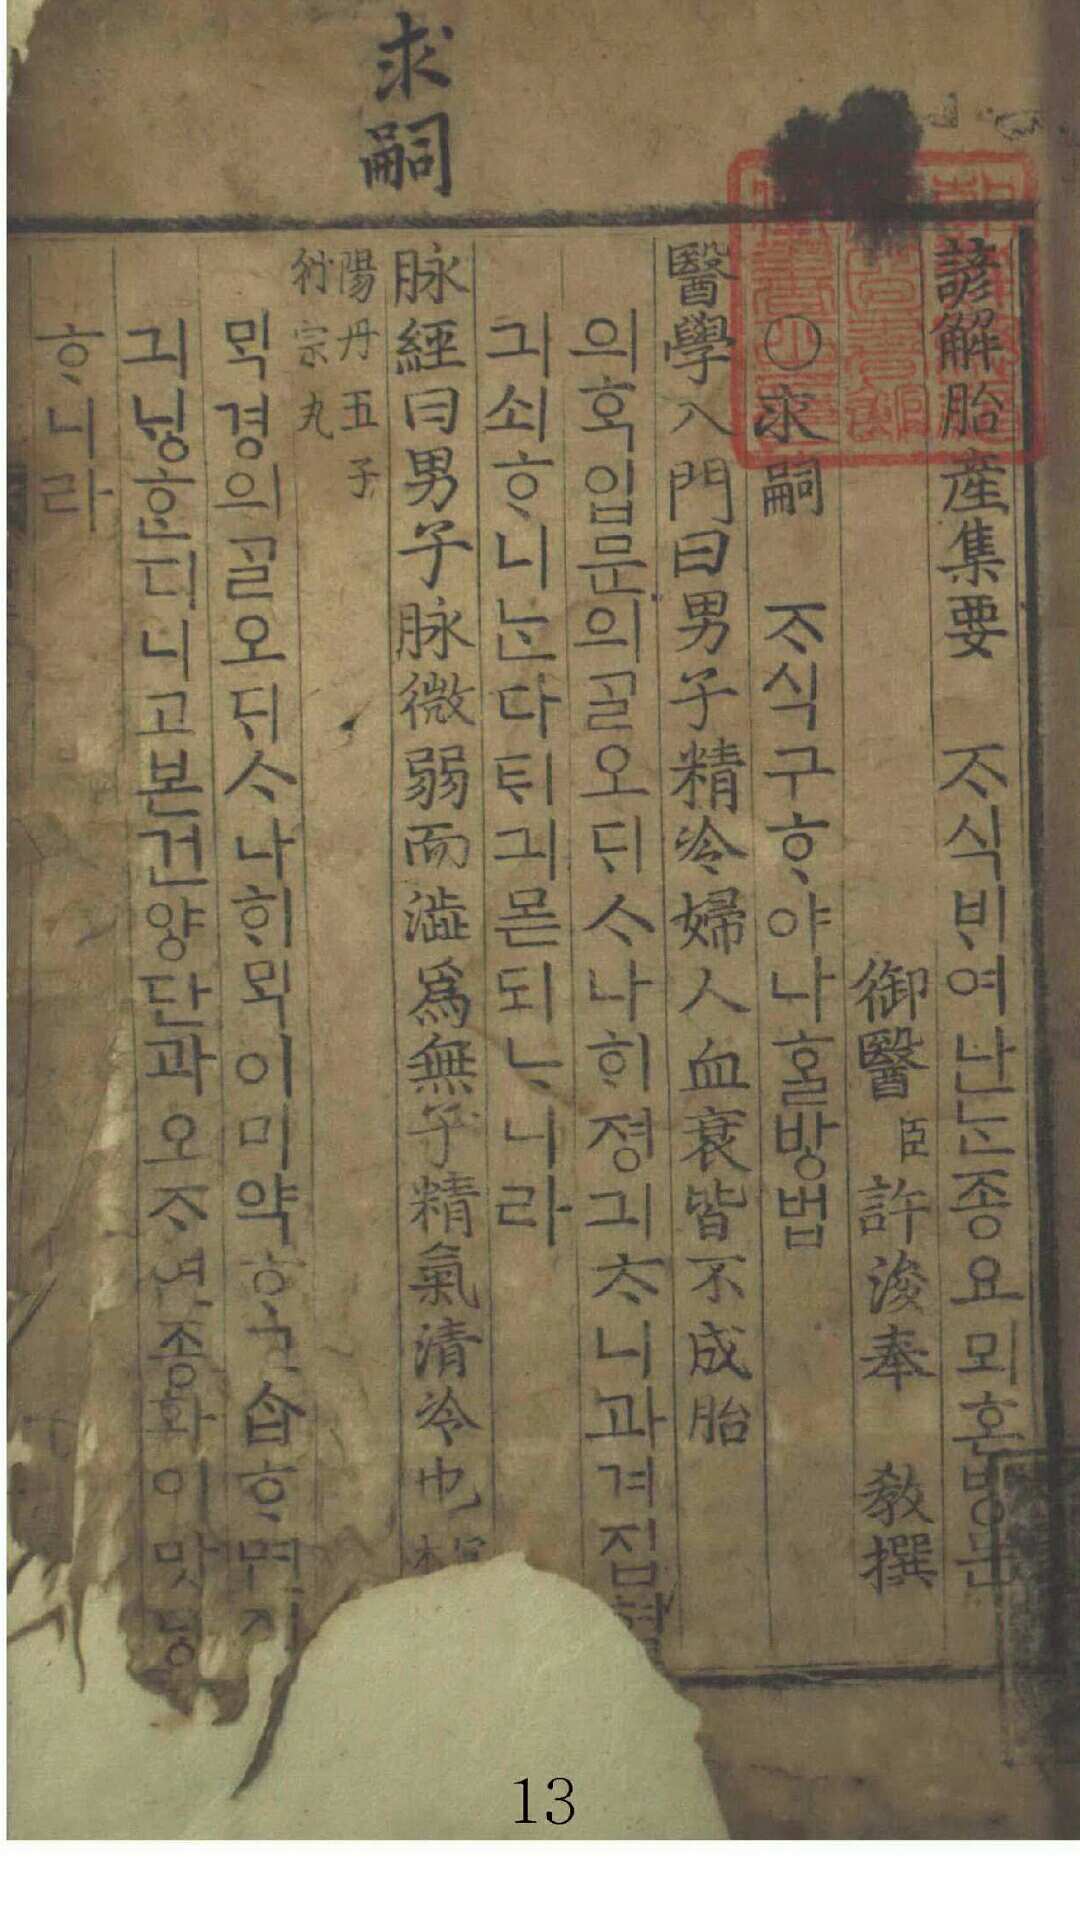 求嗣
諺解胎産集要 ᄌᆞ식ᄇᆡ여난ᄂᆞᆫ죵요뫼혼방문
御醫臣許浚奉 敎撰
○求嗣 ᄌᆞ식구ᄒᆞ야나홀방법
醫學入門曰男子精冷婦人血衰皆不成胎
의ᄒᆞᆨ입문의ᄀᆞᆯ오ᄃᆡᄉᆞ나ᄒᆡ졍긔ᄎᆞ니과겨집
긔쇠ᄒᆞ니ᄂᆞᆫ다ᄐᆡ긔몯되ᄂᆞ니라
脉經曰男子脉微弱而澁爲無子精氣清冷也
陽丹五子
衍宗丸
ᄆᆡᆨ경의ᄀᆞᆯ오ᄃᆡᄉᆞ나ᄒᆡᄆᆡᆨ이미약ᄒᆞ고ᄉᆞᆸᄒᆞ면
긔ᄂᆡᆼᄒᆞᆫ디니고본건양단과오ᄌᆞ연종화이맛당
ᄒᆞ니라
13